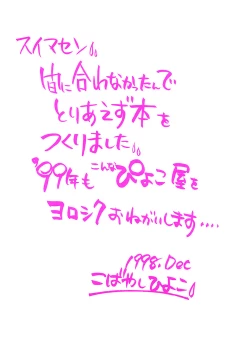 スイマセン。
間に合わなかったんで
とりあえず本を
つくりました。
'99年も こんな ぴよこ屋を
ヨロシクおねがいします....
1998. Dec
こばやしひよこ。